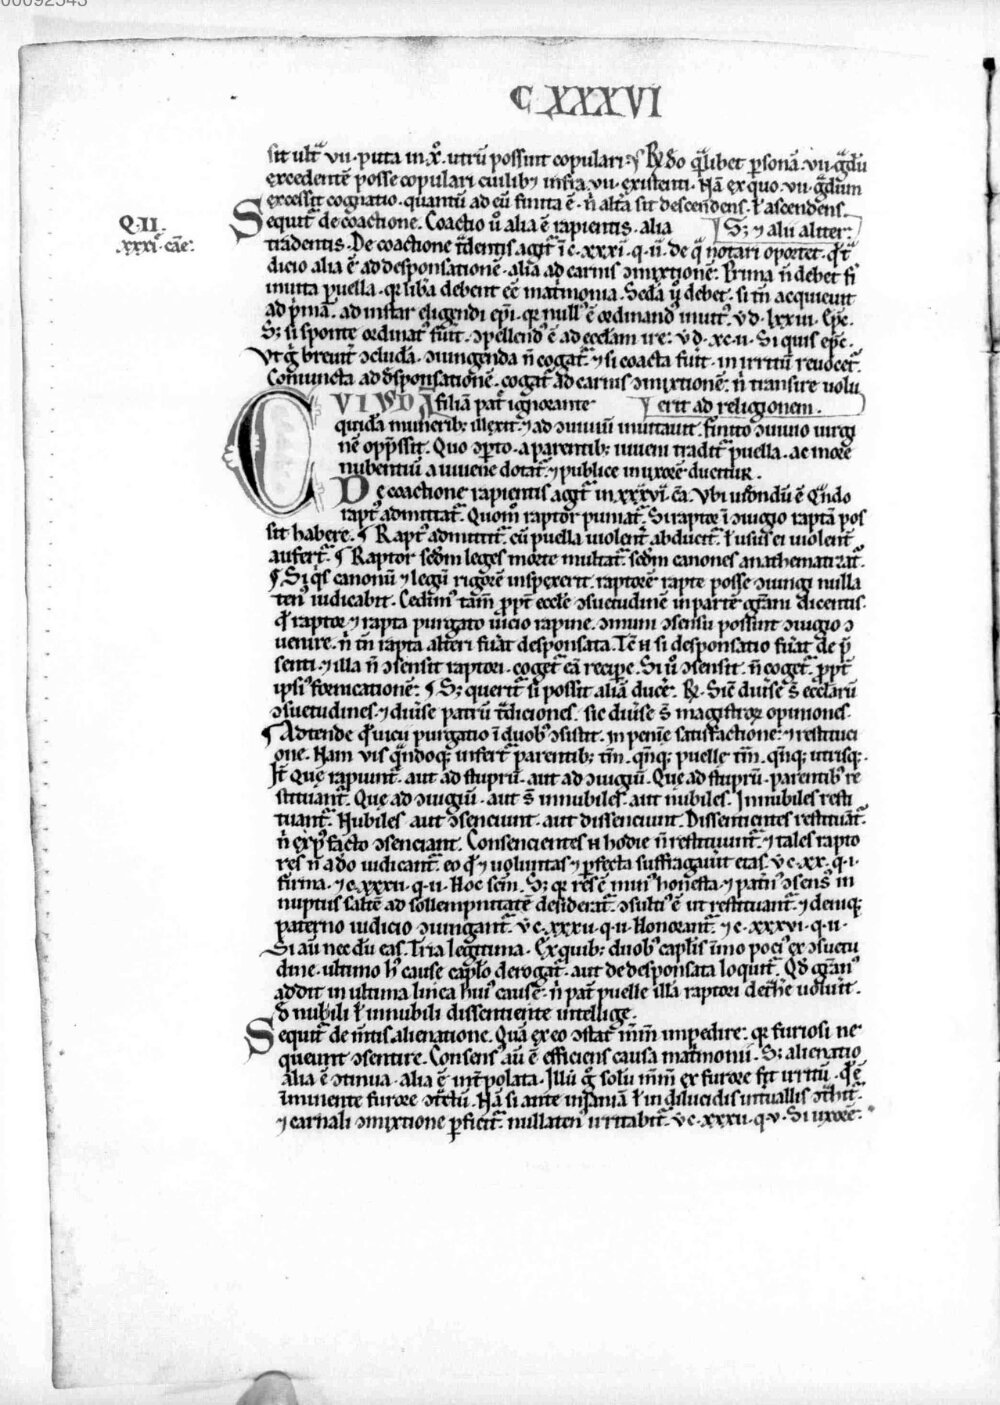 00092343
C XXXVI
sit ult̄ᵃ .vii. puta in .x̊. utrū possunt copulari: ¶ R̄ do q̄libet ꝑsonā .vii. gᵃdū
excedentē posse copulari cuilibꝫ infra .vii. existenti. Nā ex quo .vii. gᵃdum
excessit cognatio. quantū ad eū finita ē. ñ altā sit descendens. ł ascendens.
Q. II.
.xxxi. cāe:
Sequit᷑ de coactione. Coactio ů alia ē rapientis. alia
Sꝫ ⁊ alii aliter:
tradentis. De coactione t̄dentis agit᷑ ī c̄ .xxxi. q. ii. de q̄ notari oportet. qđ t̄ᵃ
dicio alia ē ad desponsationē. alia ad carnis ɔmixtionē: Prima ñ debet fi᷑
inuita puella. qꝛ liba debent eē mat᷑monia. Scđa ů debet. si tñ acquieuit
ad p̄mā. ad instar eligendi ep̄i. qꝛ null᷒ ē ordinand᷒ inuit᷒. v̄ d. lxxiiii. Ep̄c.
Sꝫ si sponte ordinat᷒ fuit. ɔpellend᷒ ē ad eccl̄am ire: v̄ d. xc. ii. Si quis ep̄c.
Vt g̊ breuit᷑ ɔcludā. ɔiungenda ñ cogat᷑. ⁊ si coacta fu̇it. in irritū reuocet᷑.
Coniuncta ad desponsationē. cogat᷑ ad carnis ɔmixtionē: ñ transire uolu
CVIVSDĀ filiā pat᷑ ignorante
erit ad religionem.
quidā munerib: illexit. ⁊ ad ɔuiuiū inuitauit. finito ɔuiuio uirgi
nē opp̄ssit. Quo ɔꝑto. a parentib: iuueni tradit᷑ puella. ac more
nubentiū a iuuene dotat᷑. ⁊ publice in uxorē ducituʀ.
De coactione rapientis agit᷑ in .xxxvi. cā. Vbi uidendū ē q̄ndo
rapt᷒ admittat᷑. Quom̊ raptor puniat᷑. Si raptor ī ɔiugio raptā pos
sit habere. ¶ Rapt᷒ admittit᷑. cū puella uiolent᷑ abducit᷑. ł usus ei uiolent᷑
aufert᷑. ¶ Raptor scđm leges morte multat᷑. scđm canones anathematizat᷑.
¶ Si q̇s canonū ⁊ legū rigorē inspexerit. raptorē rapte posse ɔiungi nulla
ten᷒ iudicabit. Cedim᷒ tam̄ ꝓpt᷑ eccl̄e ɔsuetudinē in partē gr̄am dicentis.
qđ raptor ⁊ rapta purgato uicio rapine. ɔmuni ɔsensu possunt ɔiugio ɔ
uenire. ñ tñ rapta alteri fu̇at desponsata. Tc̄ ʜ si desponsatio fu̇at de p̄
senti. ⁊ illa ñ ɔsensit raptori. coget᷑ eā reciꝑe. Si ů ɔsensit. ñ coget᷑. ꝓpt᷑
ipsi᷒ fornicationē: ¶ Sꝫ querit᷑ si possit aliā duc̄e. R̄. Sic̄ diu̇se s̄ eccl̄arū
ɔsuetudines. ⁊ diu̇se patrū t̄diciones. sic diu̇se s̄ magistroꝝ opiniones.
¶ Adtende qđ uicii purgatio ī duob᷒ ɔsistit. in penīe satisfactione: ⁊ restituci
one. Nam uis q̄ndoqꝫ infert᷑ parentibꝫ tm̄. qn̄qꝫ puelle tm̄. qn̄qꝫ utrisqꝫ.
It̄ Que rapiunt᷑. aut ad stuprū. aut ad ɔiugiū. Que ad stuprū. parentib᷒ re
stituant᷑. Que ad ɔiugiū. aut s̄ innubiles. aut nubiles. Innubiles resti
tuant᷑. Nubiles aut ɔsenciunt. aut dissenciunt. Dissentientes restituāt᷑.
ñ exp᷒ facto ɔsenciant. Consencientes ʜ hodie ñ restituunt᷑. ⁊ tales rapto
res ñ ado iudicant᷑. eo qđ ⁊ uoluntas ⁊ ꝑfecta suffragauit etas. v̄ c. xx. q. i.
firma. ⁊ c. xxxii. q. ii. Hoc scm̄. Sꝫ qꝛ res ē min᷒ honesta. ⁊ patn᷒ ɔsens᷒ in
nuptus saltē ad sollempnitatē desiderat᷑. ɔsulti᷒ ē ut restituant᷑. ⁊ deniqꝫ
paterno iudicio ɔiungant᷑. v̄ c. xxxii. q. ii. Honorant᷑. ⁊ c. xxxvi. q. ii.
Si aū nec dū eas. Tria legitima. Ex quib: duob᷒ capl̄is īmo poci᷒ ex ɔsuetu
dine. ultimo h᷒ cause capl̄o derogat᷑. aut de desponsata loquit᷑. Qđ gr̄an᷒
addit in ultima linea hui᷒ cause. ñ pat᷑ puelle illā raptori dech̄e uolu̇it.
đ nubili ł innubili dissentiente intellige.
Sequit᷑ de m̄tis alienatione. Quā ex eo ɔstat m̄m̄ impedire: qꝛ furiosi ne
queunt ɔsentire. Consens᷒ aū ē efficiens causa mat᷑monii. Sꝫ alienatio
alia ē ɔtinua. alia ē int᷑polata. Illū g̊ solū m̄m̄ ex furore fit irritū. qđ ē
īminente furore ɔt᷑ctū. Nā si ante insaniā ł in dilucidis int᷑uallis ɔt̄hit᷑.
⁊ carnali ɔmixtione ꝑficit᷑. nullaten᷒ irritabit᷑. v̄ c. xxxii. q. v. Si uxorē.